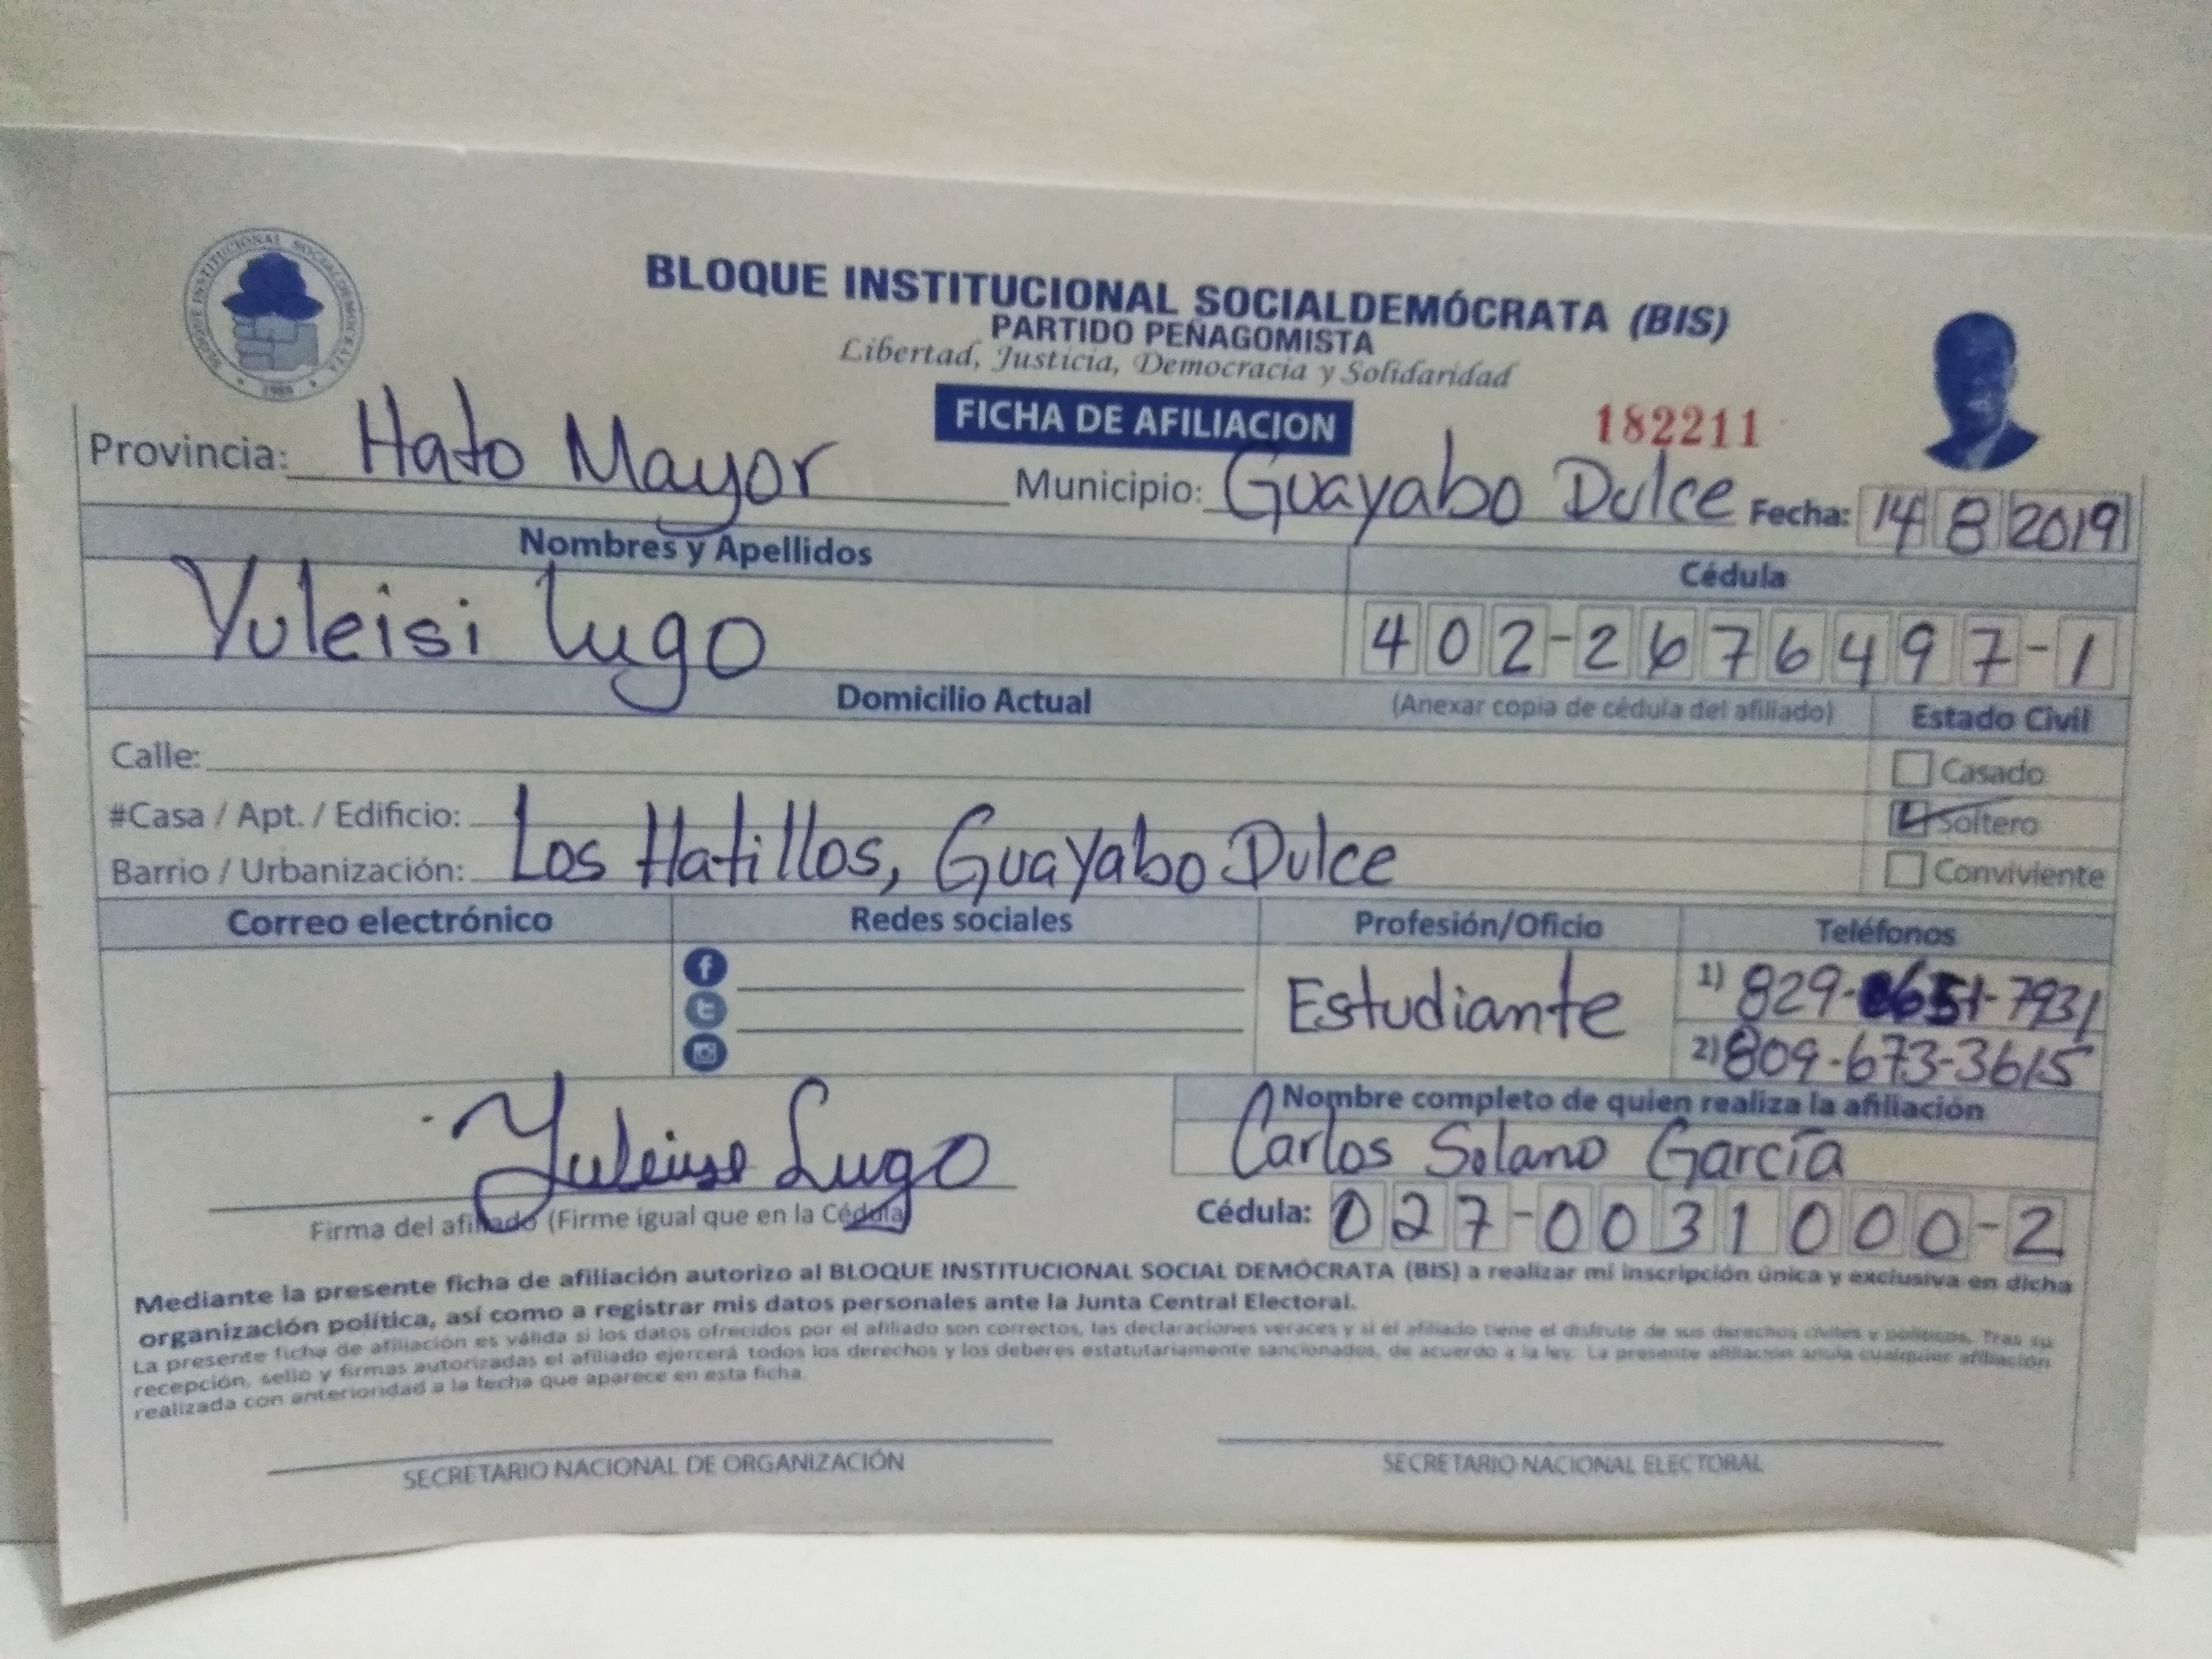 BLOQUE INSTITUCIONAL SOCIALDEMOCRATA
1989
BLOQUE INSTITUCIONAL SOCIALDEMÓCRATA (BIS)
PARTIDO PEÑAGOMISTA
Libertad, Justicia, Democracia y Solidaridad
FICHA DE AFILIACION
182211
Provincia: Hato Mayor Municipio: Guayabo Dulce Fecha: 14 8 2019
Nombres y Apellidos Cédula
Yuleisi Lugo 402-2676497-1
Domicilio Actual (Anexar copia de cédula del afiliado) Estado Civil
Calle: Casado
#Casa / Apt. / Edificio: Soltero
Barrio / Urbanización: Los Hatillos, Guayabo Dulce Conviviente
Correo electrónico Redes sociales Profesión/Oficio Teléfonos
Estudiante 1) 829- -7931
2) 809-673-3615
Nombre completo de quien realiza la afiliación
Carlos Solano García
Lugo
Firma del afiliado (Firme igual que en la Cédula) Cédula: 027-0031000-2
Mediante la presente ficha de afiliación autorizo al BLOQUE INSTITUCIONAL SOCIAL DEMÓCRATA (BIS) a realizar mi inscripción única y exclusiva en dicha
organización política, así como a registrar mis datos personales ante la Junta Central Electoral.
La presente ficha de afiliación es válida si los datos ofrecidos por el afiliado son correctos, las declaraciones veraces y si el afiliado tiene el disfrute de sus derechos civiles y políticos. Tras su
recepción, sello y firmas autorizadas el afiliado ejercerá todos los derechos y los deberes estatutariamente sancionados, de acuerdo a la ley. La presente afiliación anula cualquier afiliación
realizada con anterioridad a la fecha que aparece en esta ficha.
SECRETARIO NACIONAL DE ORGANIZACIÓN SECRETARIO NACIONAL ELECTORAL